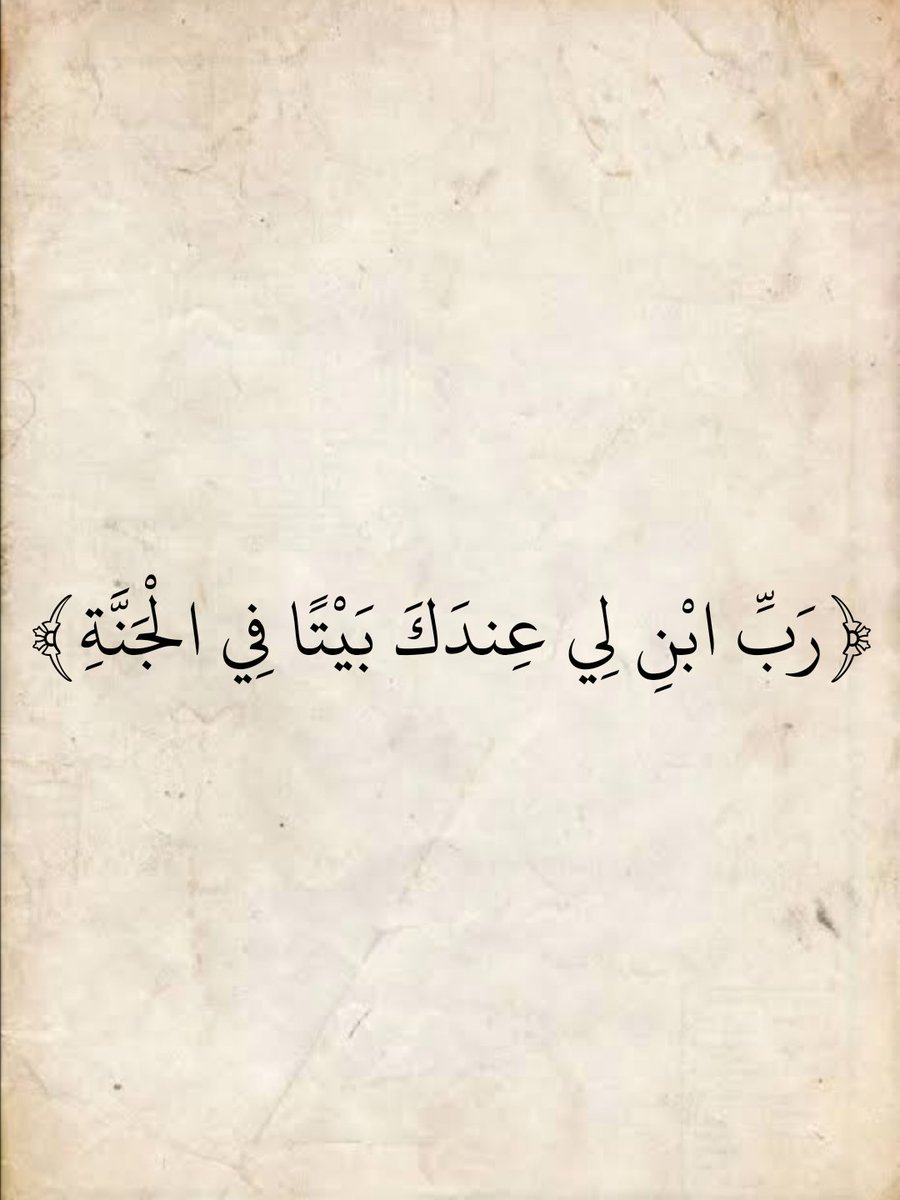 ﴿رَبِّ ابْنِ لِي عِندَكَ بَيْتًا فِي الْجَنَّةِ﴾